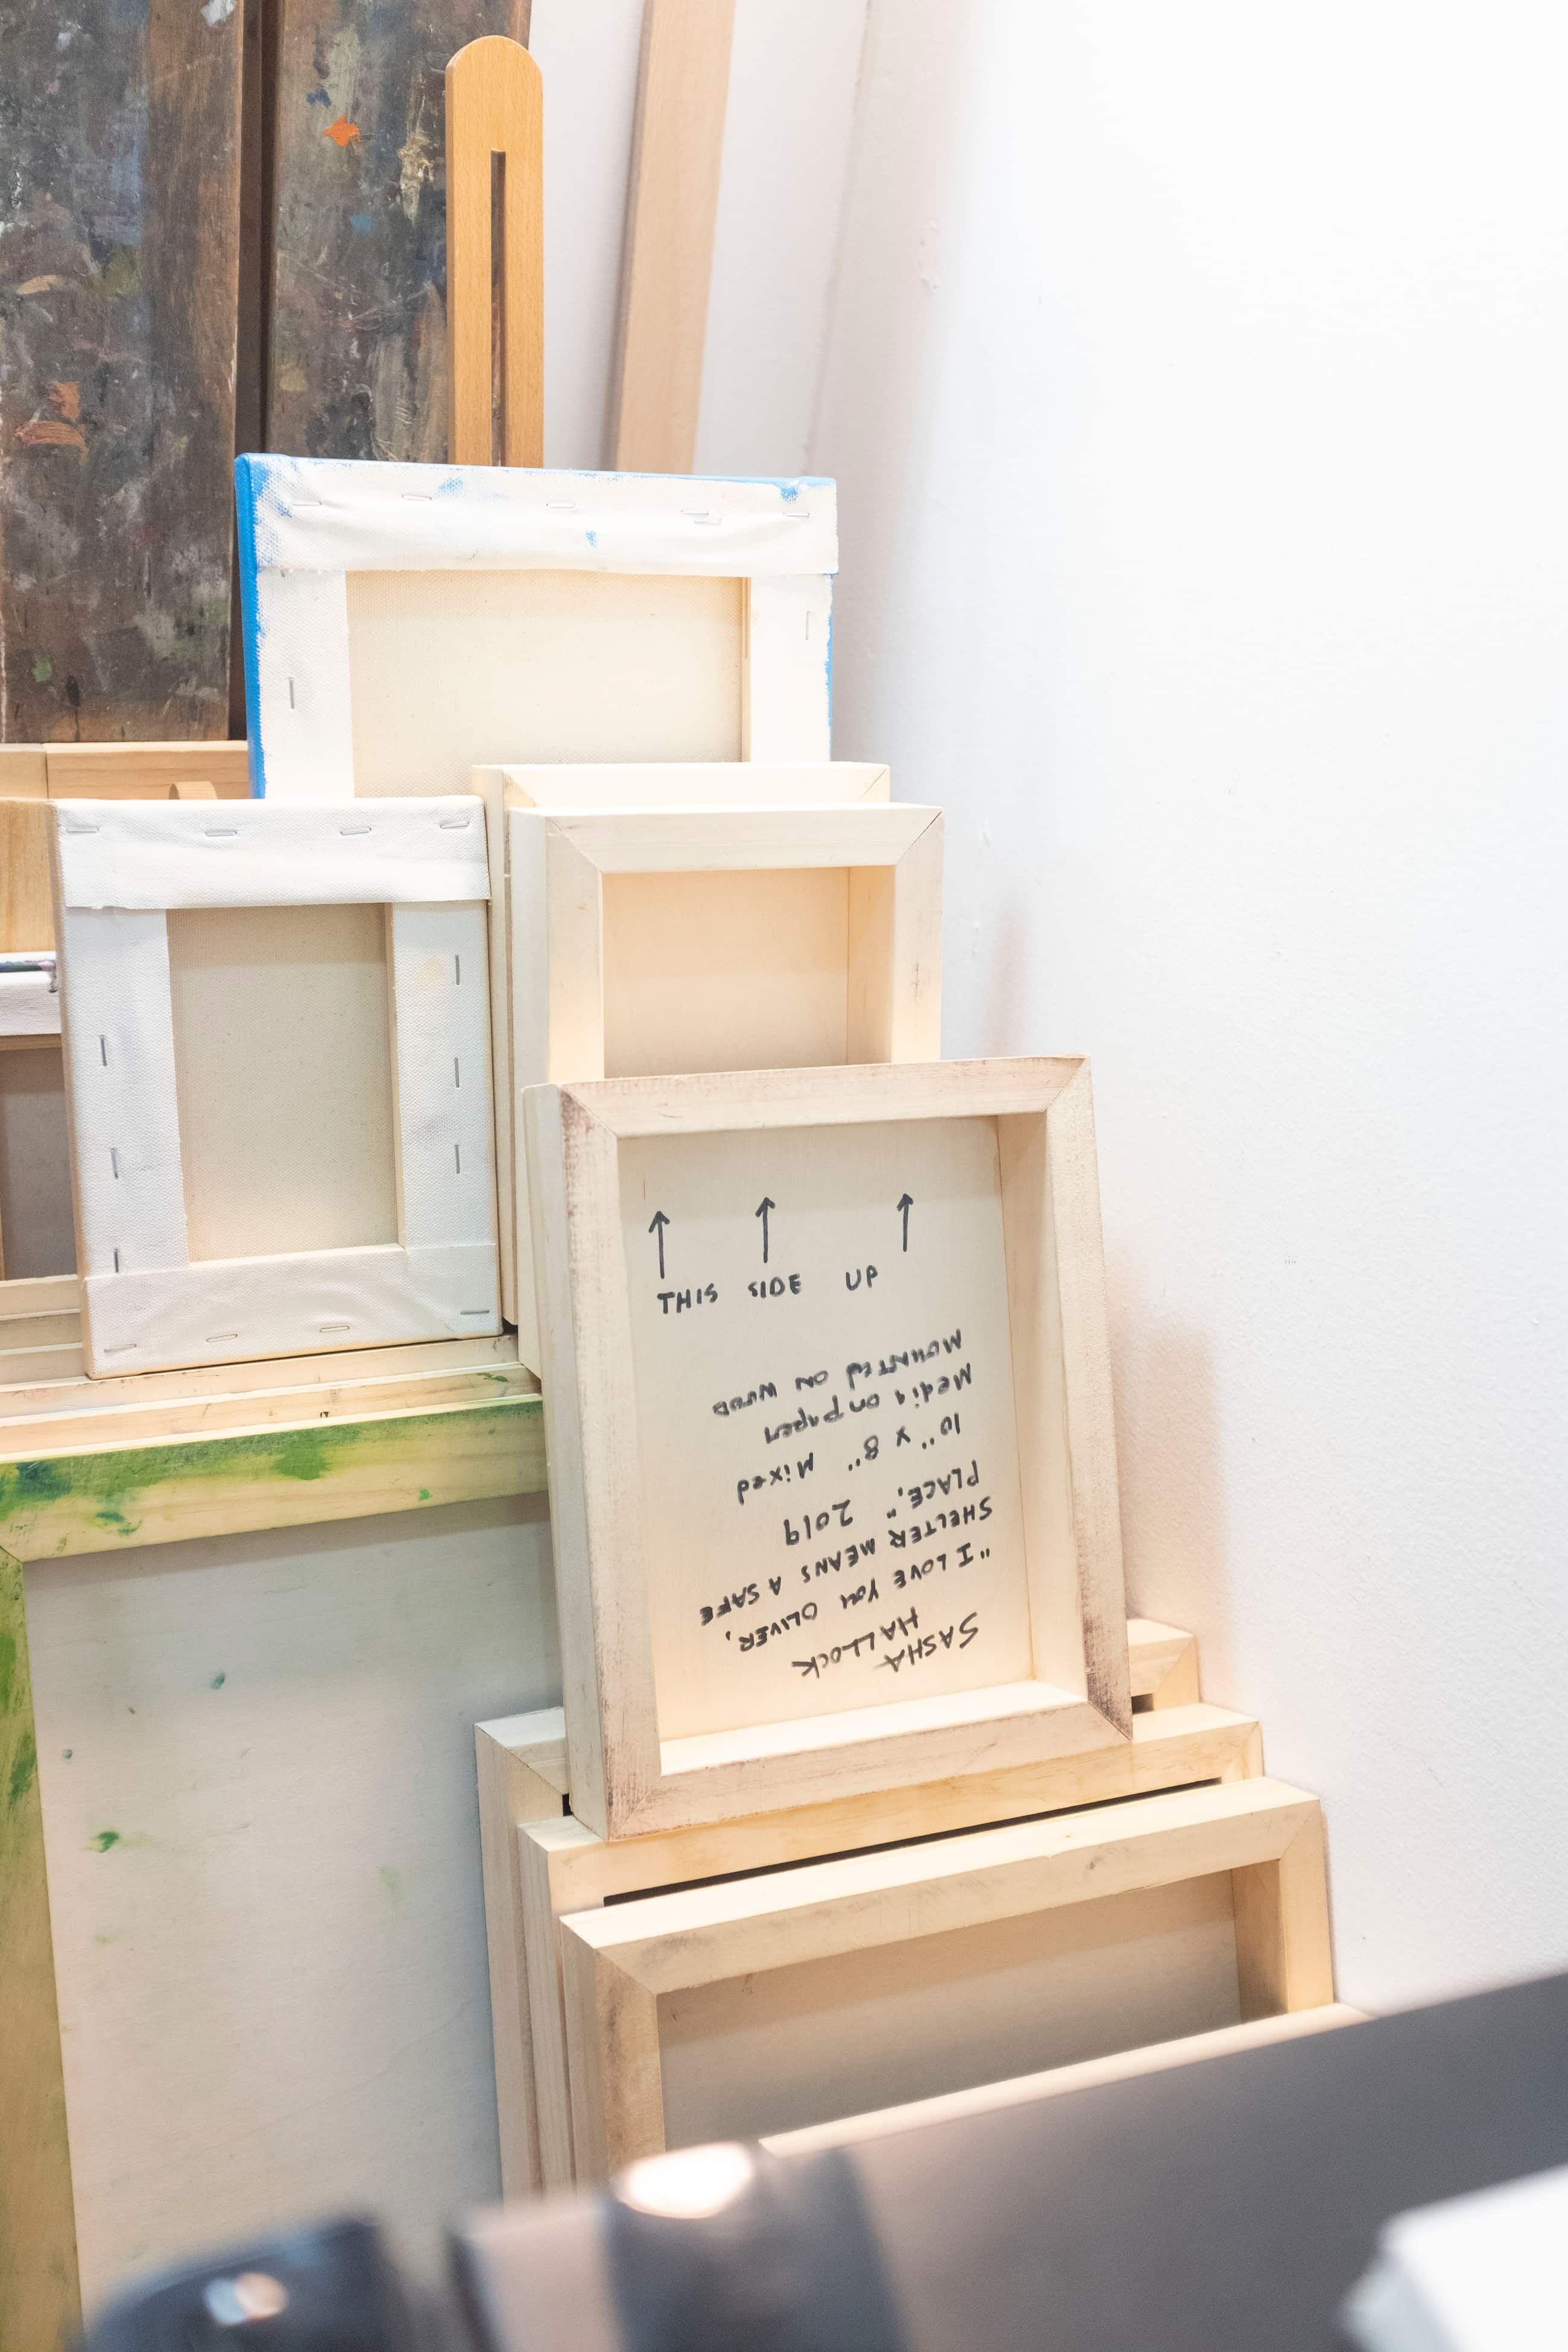 THIS SIDE UP
SASHA
HALLOCK
"I LOVE YOU OLIVER,
SHELTER MEANS A SAFE
PLACE," 2019
10" x 8" Mixed
Media on paper
MOUNTED ON WOOD